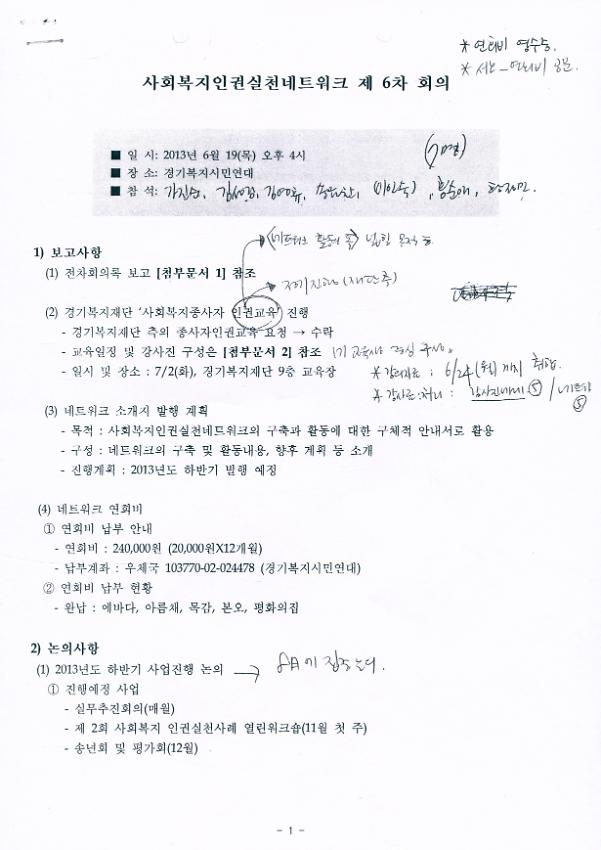 * 연회비 영수증.
사회복지인권실천네트워크 제 6차 회의
■ 일 시: 2013년 6월 19(목) 오후 4시
■ 장 소: 경기복지시민연대
■ 참 석:
1) 보고사항
(1) 전차회의록 보고 [첨부문서 1] 참조
(2) 경기복지재단 '사회복지종사자 인권교육' 진행
- 경기복지재단 측의 종사자인권교육 요청 → 수락
- 교육일정 및 강사진 구성은 [첨부문서 2] 참조
- 일시 및 장소 : 7/2(화), 경기복지재단 9층 교육장
* 강의자료 : 6/24(월)까지 취합.
(3) 네트워크 소개지 발행 계획
- 목적 : 사회복지인권실천네트워크의 구축과 활동에 대한 구체적 안내서로 활용
- 구성 : 네트워크의 구축 및 활동내용, 향후 계획 등 소개
- 진행계획 : 2013년도 하반기 발행 예정
(4) 네트워크 연회비
① 연회비 납부 안내
- 연회비 : 240,000원 (20,000원X12개월)
- 납부계좌 : 우체국 103770-02-024478 (경기복지시민연대)
② 연회비 납부 현황
- 완납 : 에바다, 아름채, 목감, 본오, 평화의집
2) 논의사항
(1) 2013년도 하반기 사업진행 논의 →
① 진행예정 사업
- 실무추진회의(매월)
- 제 2회 사회복지 인권실천사례 열린워크숍(11월 첫 주)
- 송년회 및 평가회(12월)
- 1 -